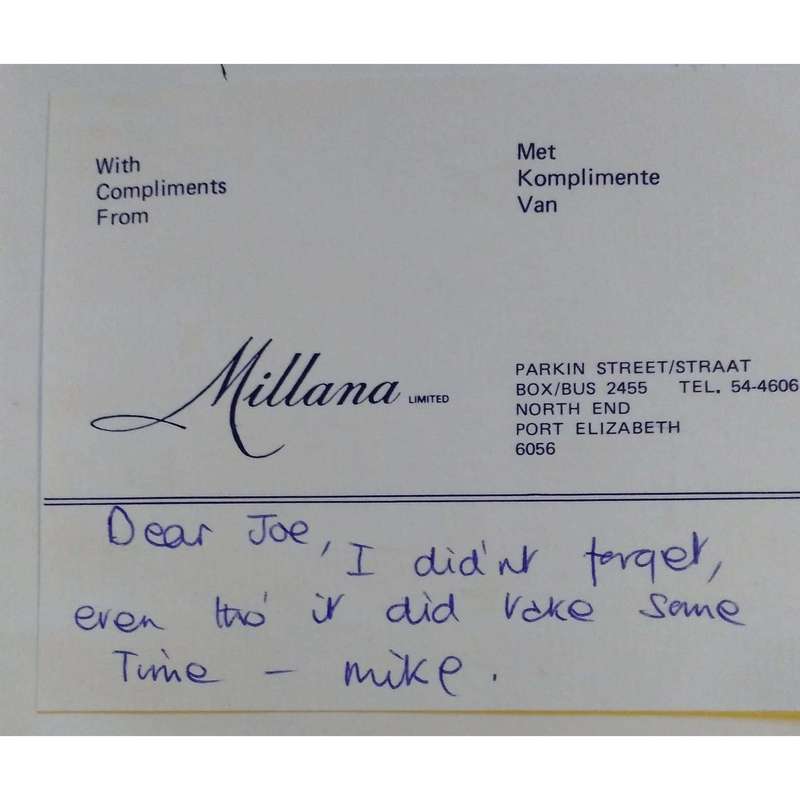 With
Compliments
From
Met
Komplimente
Van
Millana LIMITED
PARKIN STREET/STRAAT
BOX/BUS 2455 TEL. 54-4606
NORTH END
PORT ELIZABETH
6056
Dear Joe, I did'nt forget,
even tho' it did take some
Time - mike.